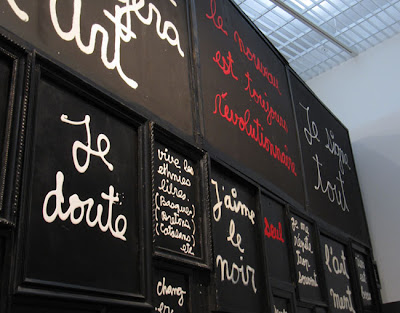 l'art
le nouveau
est toujours
révolutionnaire
Je signe
tout
Je
doute
vive les
ethnies
libres
(Basques)
(Bretons)
(Catalans)
etc
j'aime
le
noir
seul
je me
l'art
ment
chang